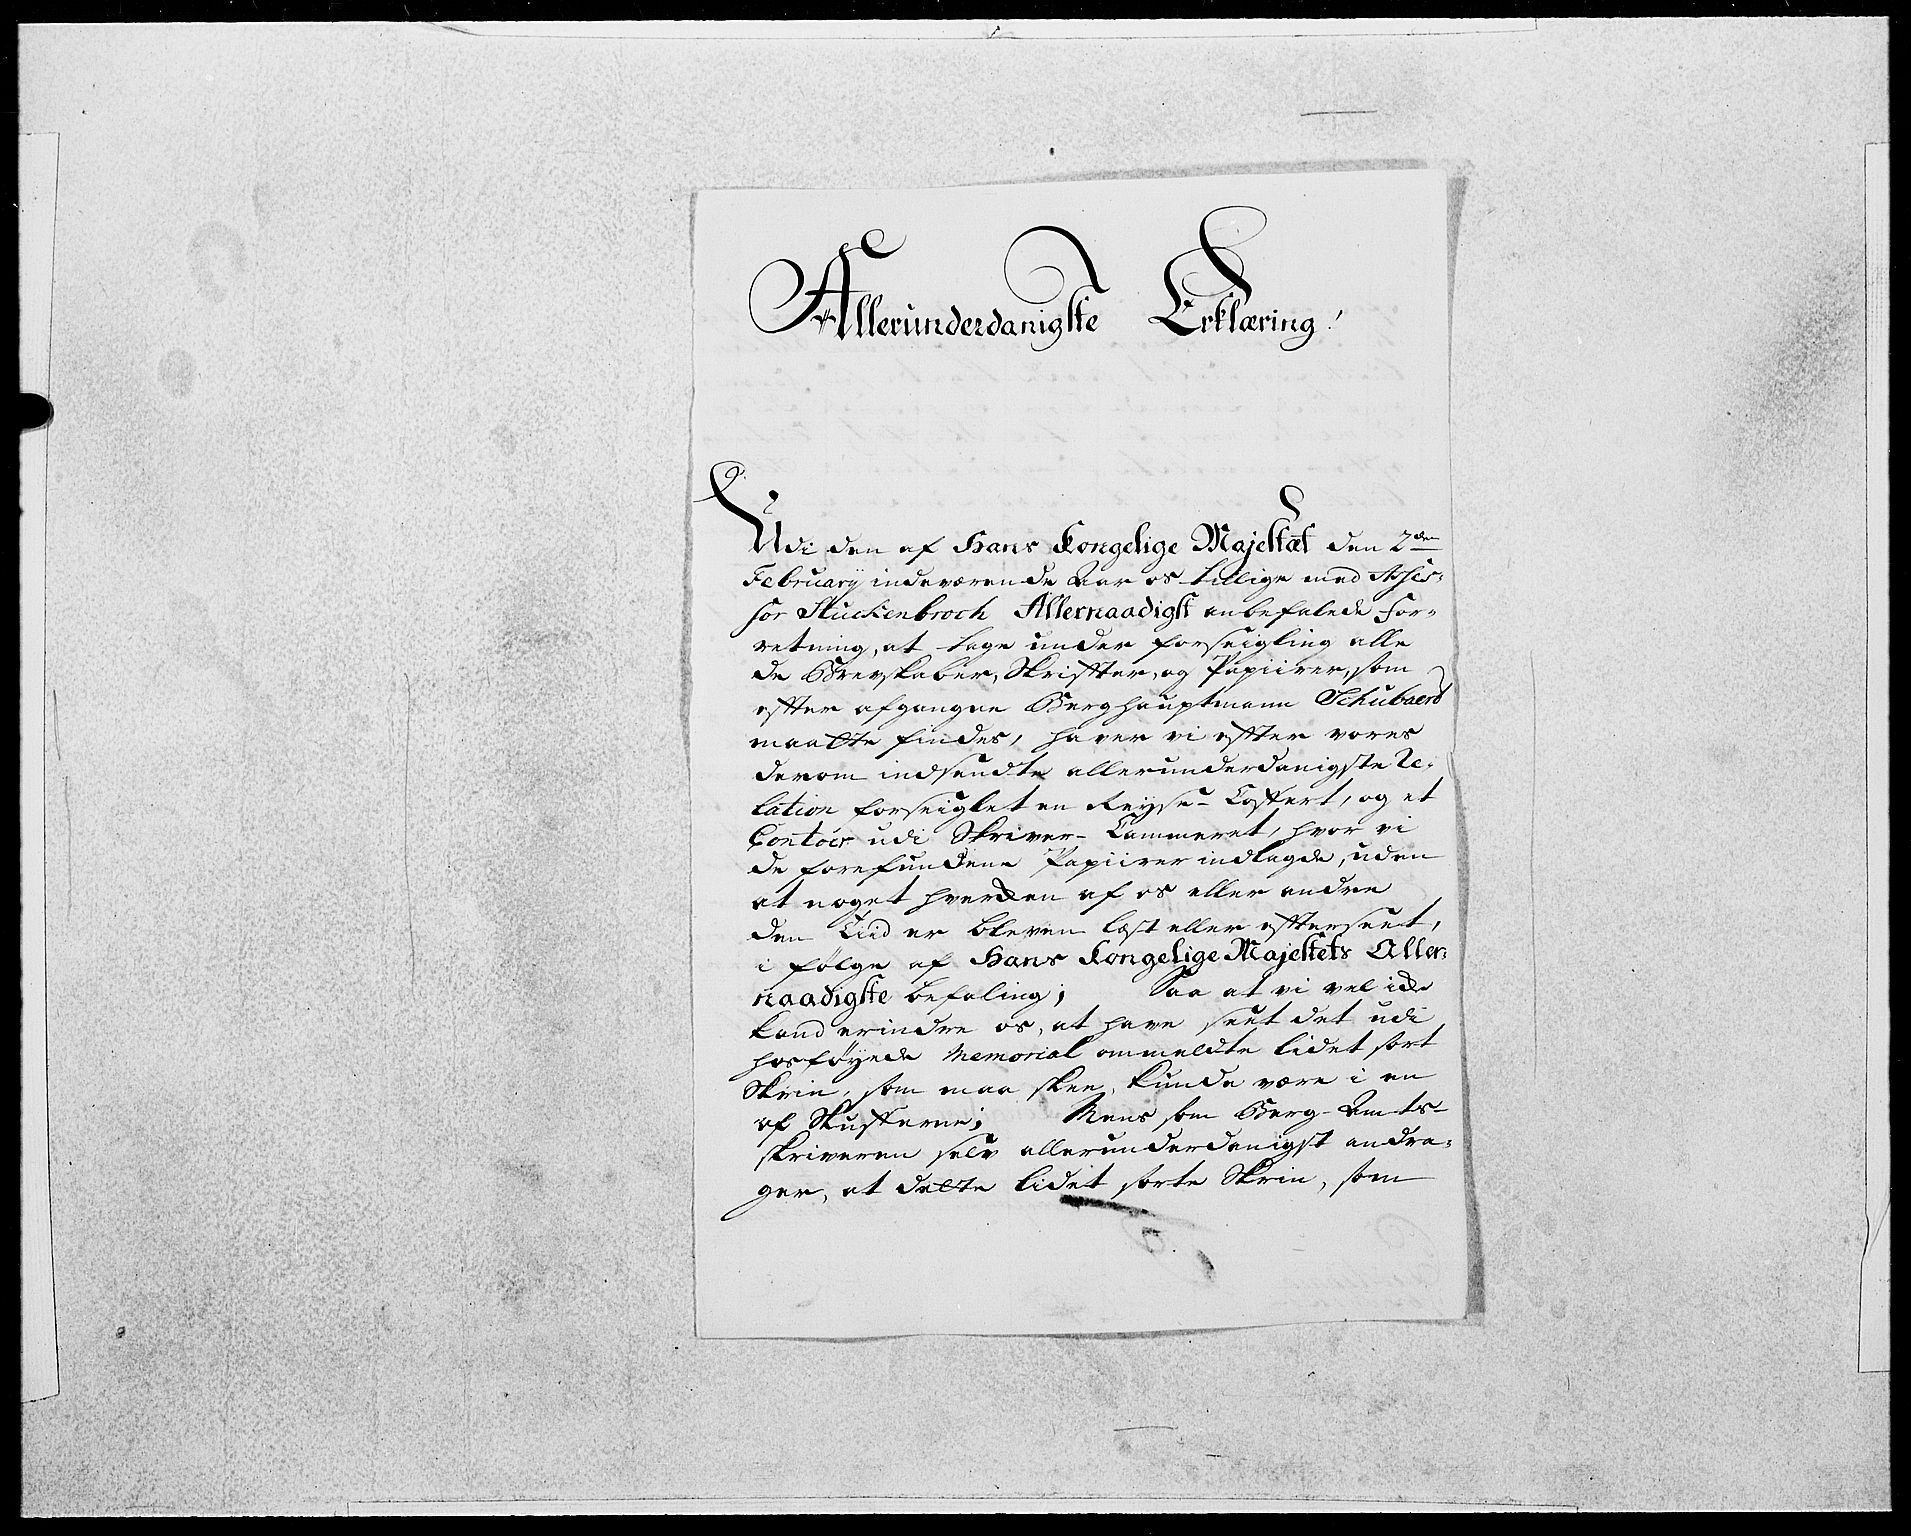 Allerunderdanigste Erklæring!
Udi den af Hans Kongelige Majestæt den 2den
February indeværende Aar os tillige med Asses-
sor Stuckenbroch Allernaadigst anbefalede For-
retning, at tage under forseigling alle
de Brevskaber, Skriffter, og Papiirer, som
effter afgangne Berghauptmann Schubaert
maatte findes, haver vi effter vores
derom indsendte allerunderdanigste Re-
lation forseiglet en Reyse-Coffert, og et
Contoir udi Skriver-Cammeret, hvor vi
de forefundene Papiirer indlagde, uden
at noget hverken af os eller andre
den Tiid er bleven læst eller effterseet,
i følge af Hans Kongelige Majestets Aller-
naadigste befaling; Saa at vi vel icke
kand erindre os, at have seet det udi
hosføyede Memorial ommeldte lidet sort
Skrin, som maa skee, kunde være i en
af Skufferne; Mens som Berg-Amts-
skriveren selv allerunderdanigst andra-
ger, at dette lidet sorte Skrin, som